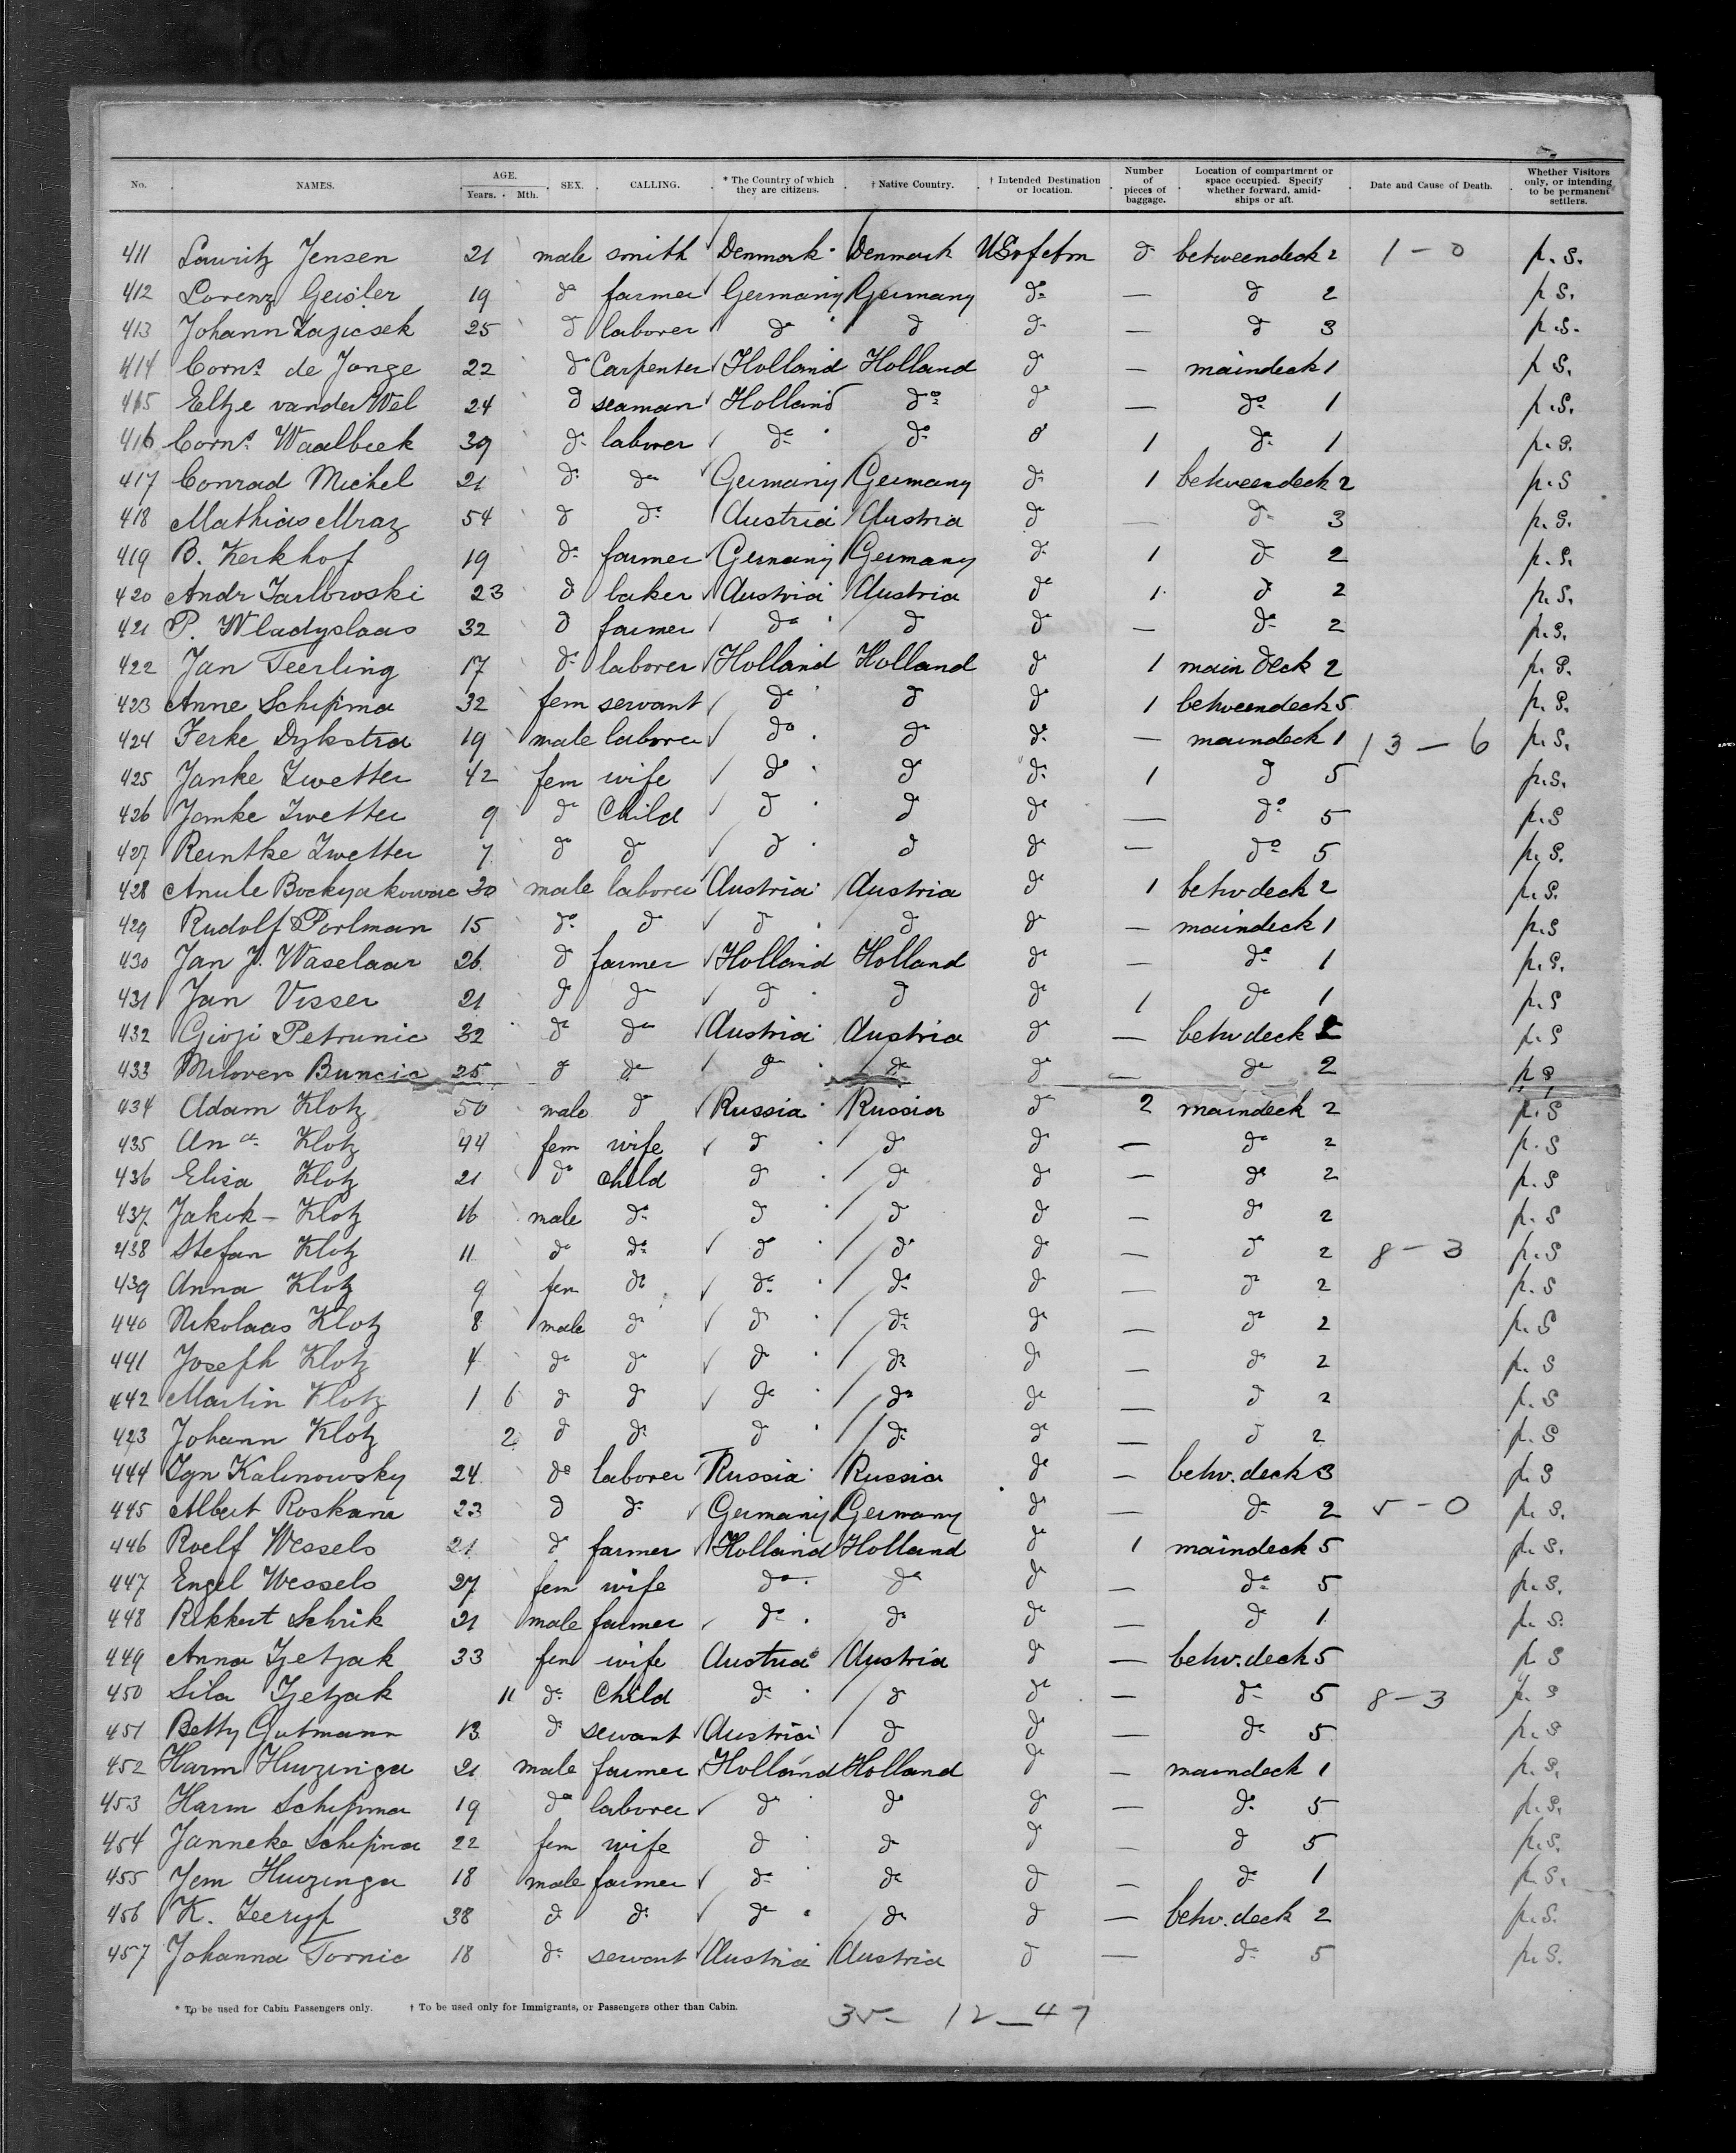 No. NAMES. AGE. Years. Mth. SEX. CALLING. * The Country of which they are citizens. † Native Country. † Intended Destination or location. Number of pieces of baggage. Location of compartment or space occupied. Specify whether forward, amidships or aft. Date and Cause of Death. Whether Visitors only, or intending to be permanent settlers.
411 Lauritz Jensen 21 male smith Denmark Denmark USofctm d betweendeck 2 1 - 0 p. S.
412 Lorenz Geisler 19 do farmer Germany Germany do — d 2 p S.
413 Johann Zajicsek 25 d laborer do d do — d 3 p.S.
414 Corns. de Jonge 22 do Carpenter Holland Holland d — maindeck 1 p S.
415 Eltje vanderWel 24 d seaman Holland do d — do 1 p.S.
416 Corns. Waalbeek 39 do laborer do do d 1 do 1 p.S.
417 Conrad Michel 21 do do Germany Germany do 1 betweendeck 2 p.S
418 Mathias Mraz 54 d do Austria Austria d — do 3 p.S.
419 B. Kerkhof 19 do farmer Germany Germany do 1 d 2 p.S.
420 Andr Jarlowski 23 d baker Austria Austria do 1 d 2 p.S.
421 P. Wladyslaas 32 d farmer do d do — do 2 p.S.
422 Jan Teerling 17 do laborer Holland Holland d 1 main deck 2 p.S.
423 Anne Schipma 32 fem servant do d do 1 betweendeck 5 p.S.
424 Ferke Dykstra 19 male laborer do do do — maindeck 1 13 — 6 p.S.
425 Janke Zwetter 42 fem wife do do do 1 d 5 p.S.
426 Jamke Zwetter 9 do Child d d do — do 5 p.S
427 Reintke Zwetter 7 do d d d do — do 5 p.S.
428 Anule 30 male laborer Austria Austria d 1 betw deck 2 p.S.
429 Rudolf Porlman 15 do d d d do — maindeck 1 p.S
430 Jan J. Waselaar 26 d farmer Holland Holland do — do 1 p.S.
431 Jan Visser 21 do do d d do 1 do 1 p.S
432 Gioji Petrunic 32 do do Austria Austria d — betw deck 2 p.S
433 Miloven Buncic 25 d do do do d — do 2 p S
434 Adam Klotz 50 male d Russia Russia d 2 maindeck 2 p.S
435 Ana Klotz 44 fem wife d d d — do 2 p.S
436 Elisa Klotz 21 do child d do d — do 2 p.S
437 Jakok Klotz 16 male do d d d — do 2 p.S
438 Stefan Klotz 11 do do do do d — d 2 8 - 3 p.S
439 Anna Klotz 9 fem do do do d — d 2 p.S
440 Nikolaas Klotz 8 male d do do do — do 2 p.S
441 Joseph Klotz 4 do d do do d — do 2 p.S
442 Martin Klotz 1 6 d d do do do — d 2 p.S
423 Johann Klotz 2 d do d do do — d 2 p.S
444 Ign Kalinowsky 24 do laborer Russia Russia do — betw. deck 3 p S
445 Albert Roskana 23 d do Germany Germany d — do 2 5 - 0 p.S.
446 Roelf Wessels 21 do farmer Holland Holland d 1 maindeck 5 p.S.
447 Engel Wessels 27 fem wife do do d — do 5 p.S.
448 Rikkert Schrik 21 male farmer do do do — d 1 p.S.
449 Anna Izetzak 33 fem wife Austria Austria d — betw. deck 5 p S
450 Lila Izetzak 11 do Child do d do — do 5 8 - 3 p. S
451 Betty Gutmann 13 do servant Austria d d — do 5 p.S
452 Harm Huizinga 21 male farmer Holland Holland d — maindeck 1 p.S.
453 Harm Schipma 19 do laborer do do d — do 5 p.S.
454 Janneke Schipma 22 fem wife d do d — d 5 p.S.
455 Jem Huizinga 18 male farmer do do d — do 1 p.S.
456 K. Zeeryp 38 d do do do d — betw. deck 2 p.S.
457 Johanna Tornic 18 do servant Austria Austria d — do 5 p.S.
* To be used for Cabin Passengers only. † To be used only for Immigrants, or Passengers other than Cabin.
35 - 12 — 47